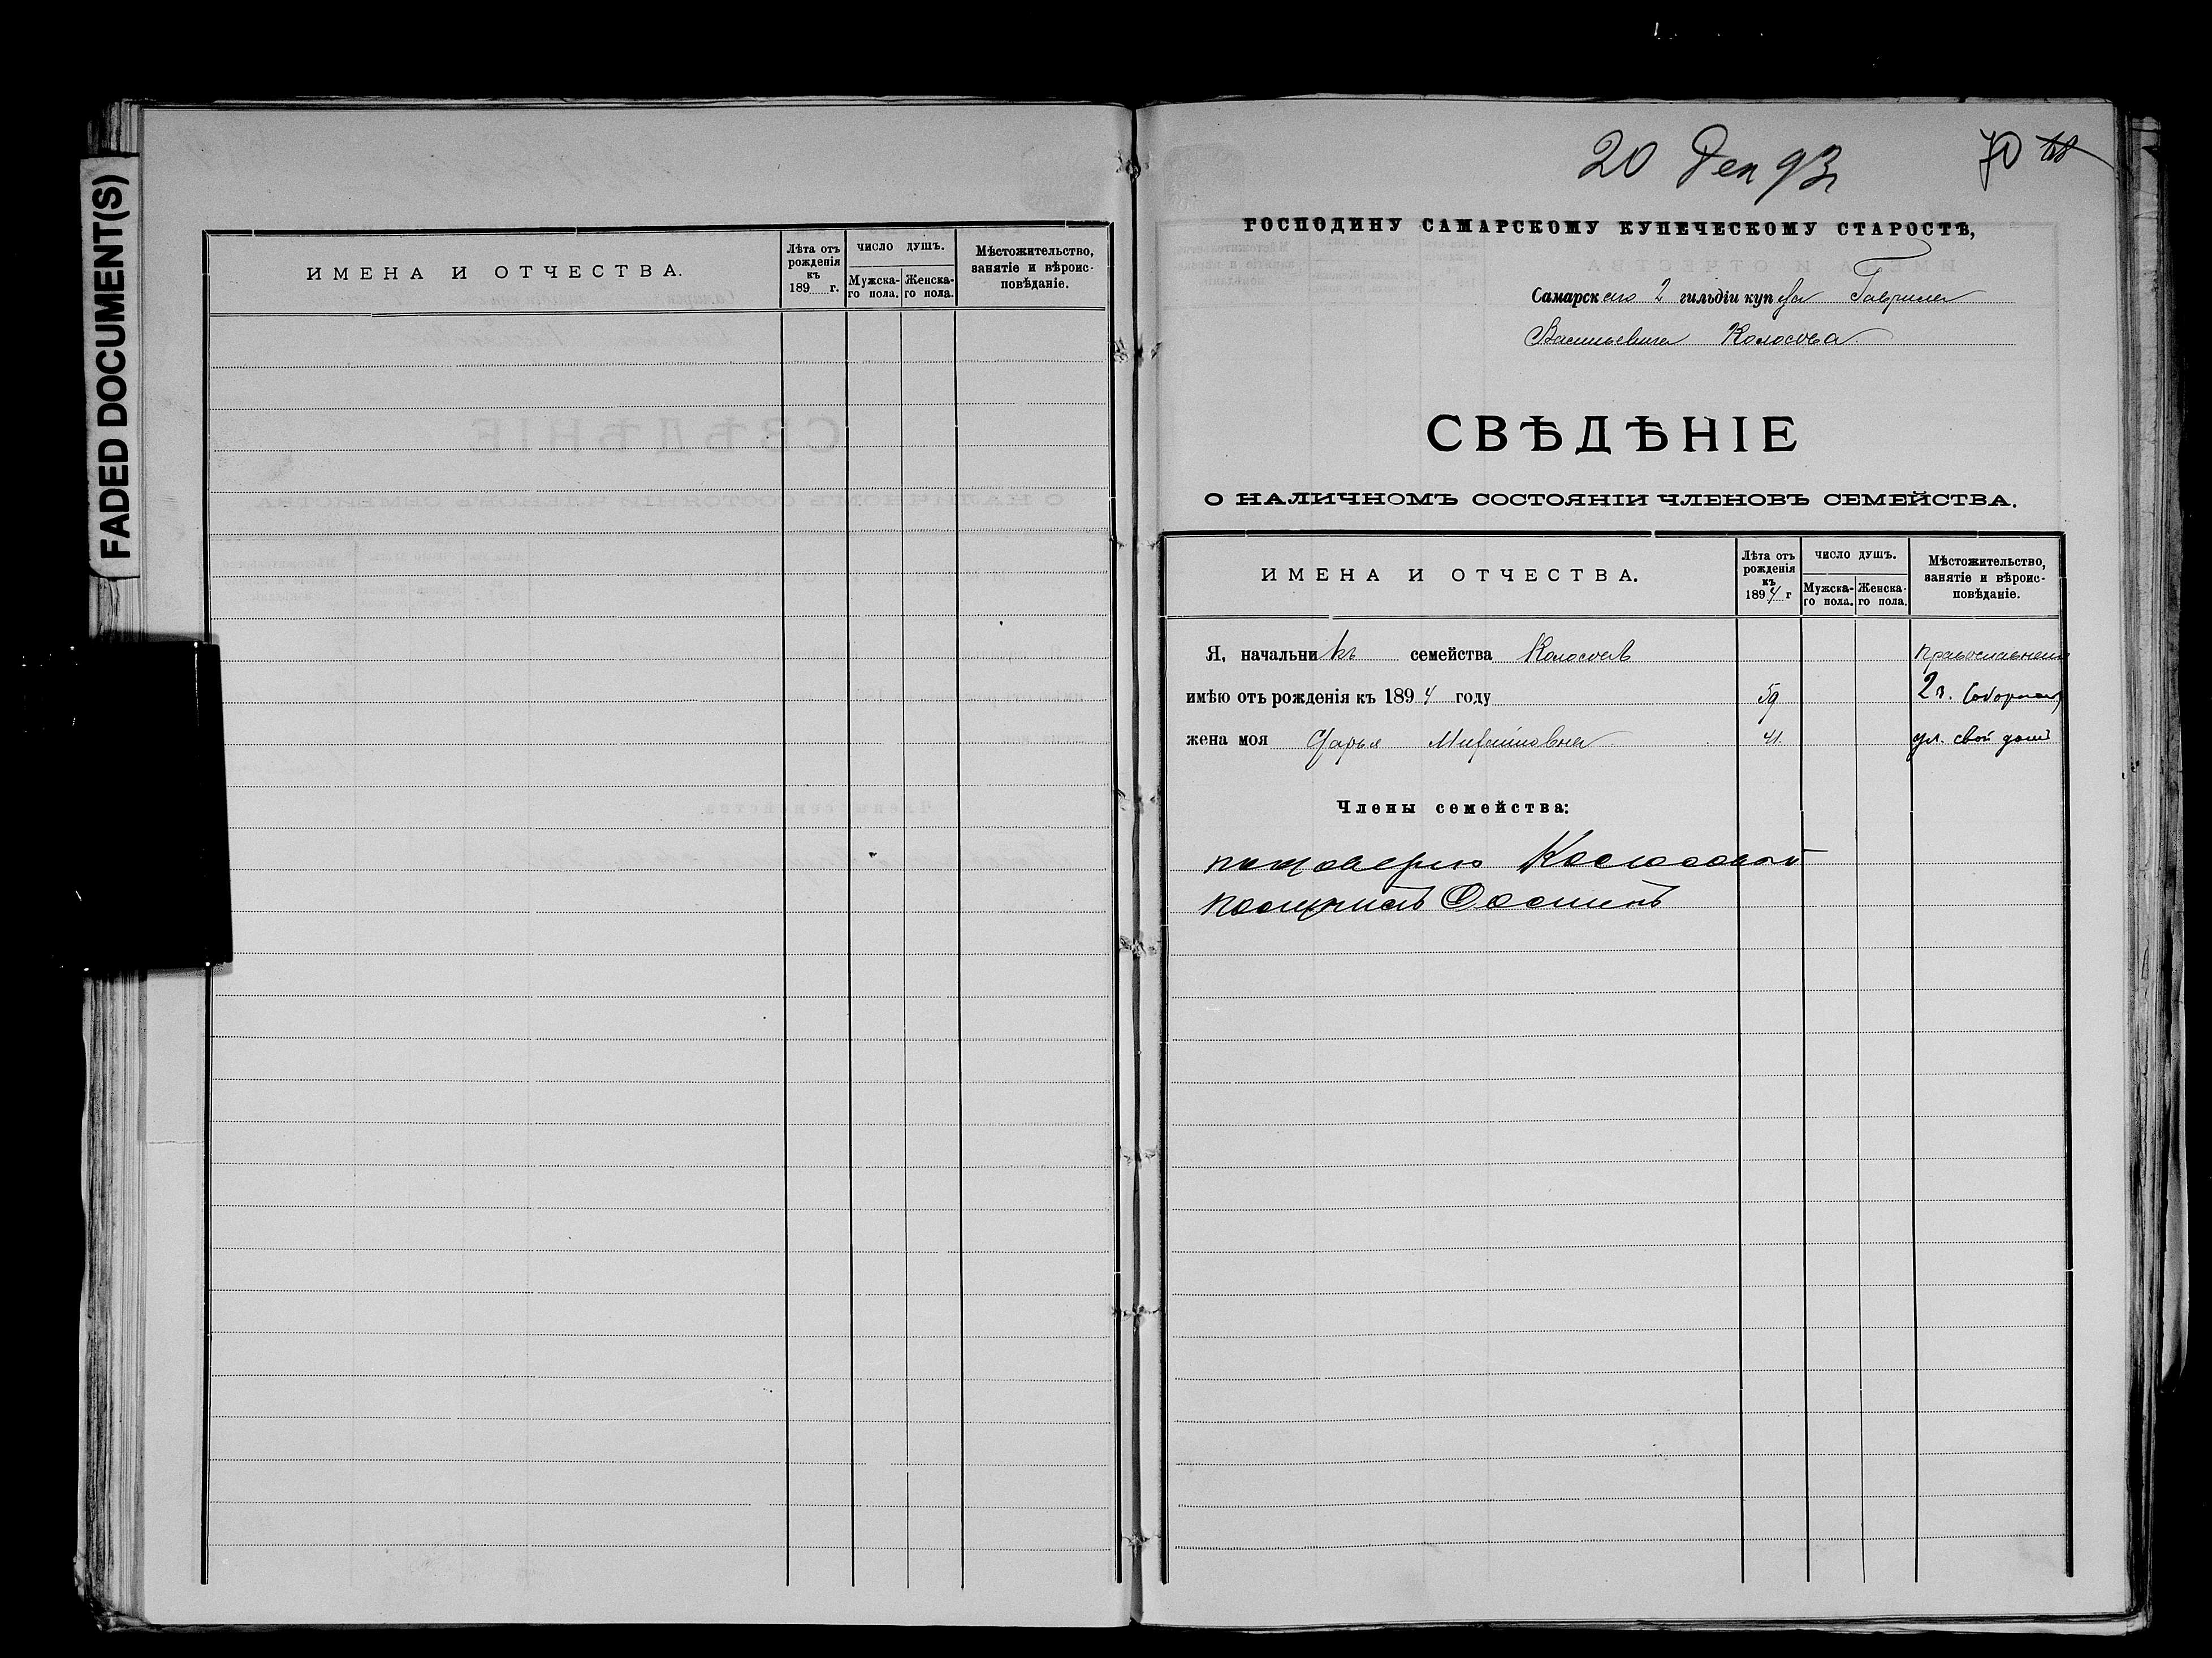 FADED DOCUMENT(S)
ИМЕНА И ОТЧЕСТВА.
Лѣта отъ рожденія къ 189 г.
ЧИСЛО ДУШЪ.
Мужска-го пола.
Женска-го пола.
Мѣстожительство, занятіе и вѣроис-повѣданіе.
20 Дек 93
70
ГОСПОДИНУ САМАРСКОМУ КУПЕЧЕСКОМУ СТАРОСТѢ,
Самарскаго 2 гильдіи купца Гаврила
Васильевича Колосова.
СВѢДѢНІЕ
О НАЛИЧНОМЪ СОСТОЯНІИ ЧЛЕНОВЪ СЕМЕЙСТВА.
ИМЕНА И ОТЧЕСТВА.
Лѣта отъ рожденія къ 1894 г
ЧИСЛО ДУШЪ.
Мужска-го пола.
Женска-го пола.
Мѣстожительство, занятіе и вѣроис-повѣданіе.
Я, начальникъ семейства Колосовъ
имѣю отъ рожденія къ 1894 году 59 2
жена моя Дарья 41 ул. свой домъ
Члены семейства: